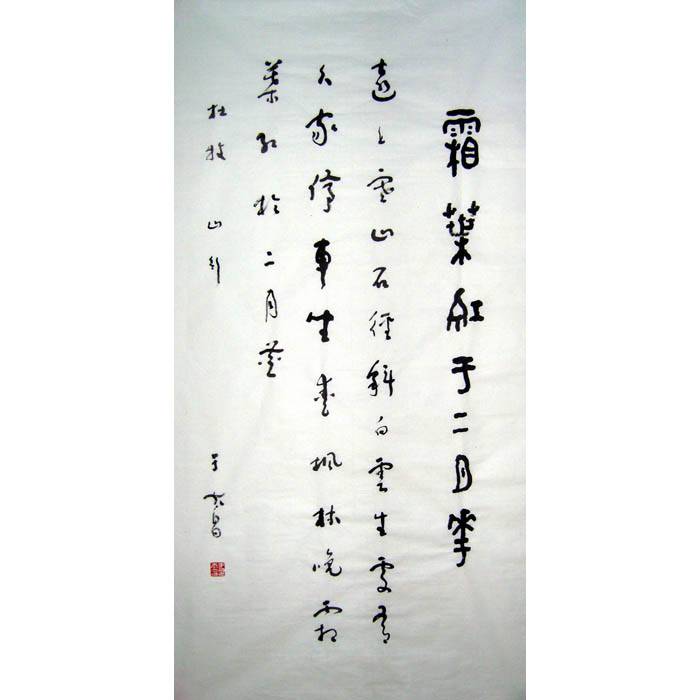 霜葉紅于二月華
遠上寒山石徑斜白雲生處有
人家停車坐愛楓林晚霜
葉紅於二月花
杜牧 山行
于